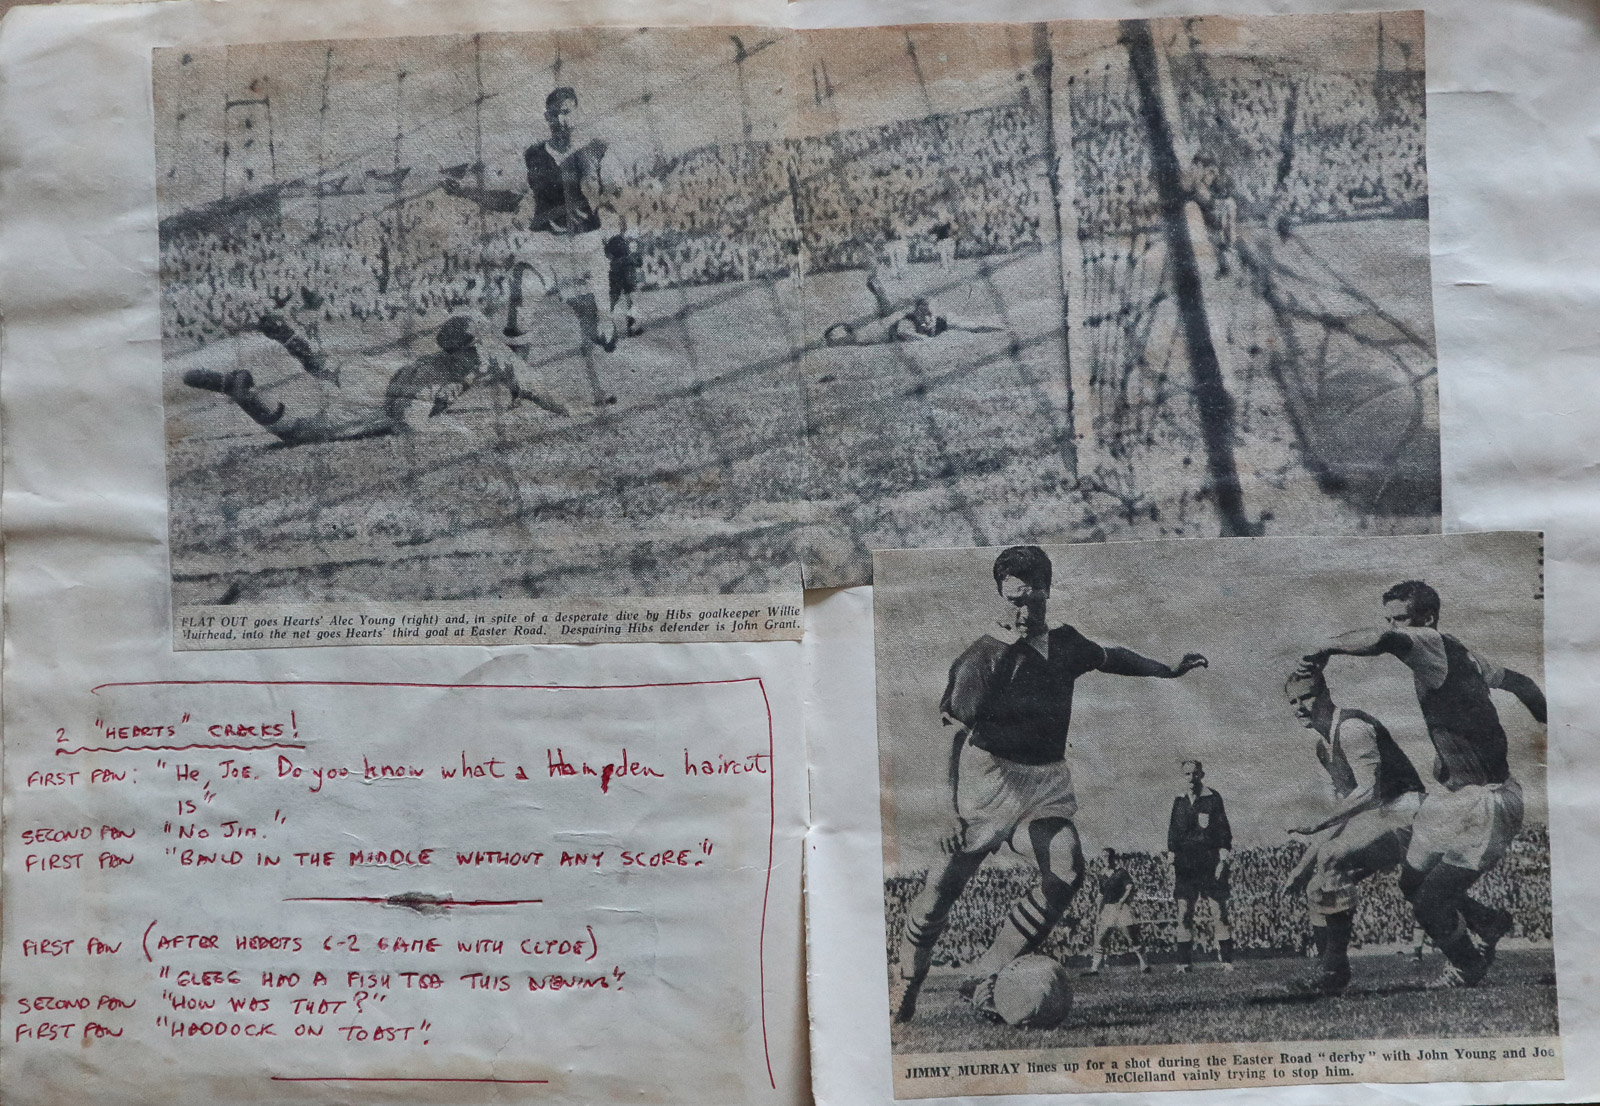 FLAT OUT goes Hearts' Alec Young (right) and, in spite of a desperate dive by Hibs goalkeeper Willie
Muirhead, into the net goes Hearts' third goal at Easter Road. Despairing Hibs defender is John Grant.
2 "HEARTS" CRACKS!
FIRST FAN: "He, JOE. Do you know what a Hampden haircut
IS"
SECOND FAN "NO JIM."
FIRST FAN "BAULD IN THE MIDDLE WITHOUT ANY SCORE."
FIRST FAN (AFTER HEARTS 6-2 GAME WITH CLYDE)
"GLEGG HAD A FISH TEA THIS
SECOND FAN "HOW WAS THAT?"
FIRST FAN "HADDOCK ON TOAST".
JIMMY MURRAY lines up for a shot during the Easter Road "derby" with John Young and Joe
McClelland vainly trying to stop him.